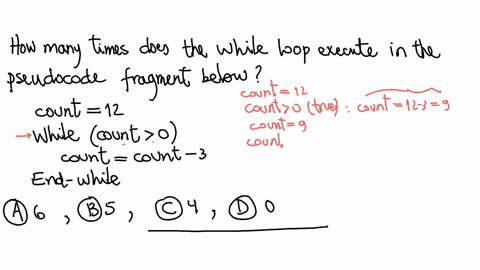 How many times does the while loop execute in the
pseudocode fragment below?
count = 12
→ While (count > 0)
count = count - 3
End-while
count = 12
count > 0 (true) : count = 12-3 = 9
count = 9
count
A 6 , B 5 , C 4 , D 0